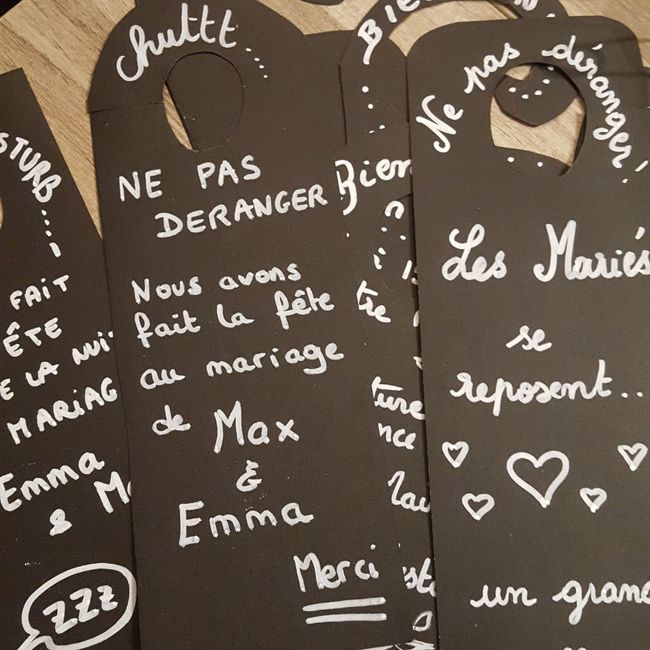 STURB....!
FAIT
ÊTE
E LA NUI
MARIAG
Emma
& M
ZZZ
chuttt....
NE PAS
DERANGER
Nous avons
fait la fête
au mariage
de Max
&
Emma
Merci
Bien
Ne pas déranger!
Les Mariés
se
reposent..
un grand